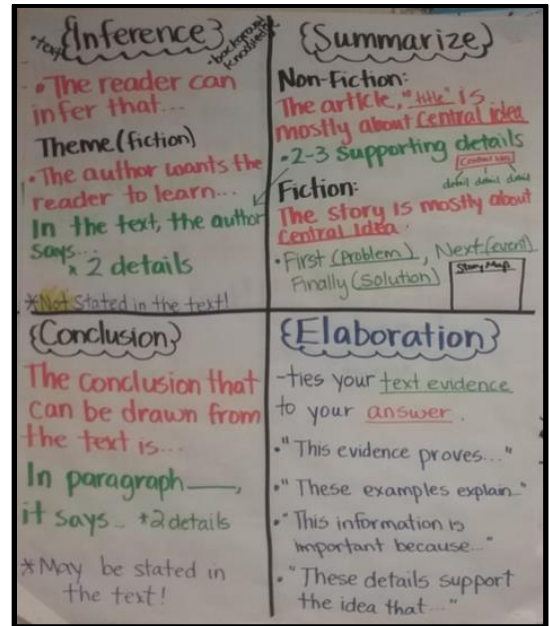 {Inference}
•text
•background
knowledge
•The reader can
infer that...
Theme (fiction)
•The author wants the
reader to learn...
In the text, the author
says...
* 2 details
*Not stated in the text!
{Summarize}
Non-Fiction:
The article, "title" is
mostly about Central idea
•2-3 supporting details
Central idea
detail detail detail
Fiction:
The story is mostly about
Central idea.
•First (problem), Next (event),
Finally (solution)
Story Map
{Conclusion}
The conclusion that
can be drawn from
the text is...
In paragraph ___,
it says... *2 details
*May be stated in
the text!
{Elaboration}
-ties your text evidence
to your answer.
•"This evidence proves..."
•"These examples explain..."
•"This information is
important because..."
•"These details support
the idea that..."